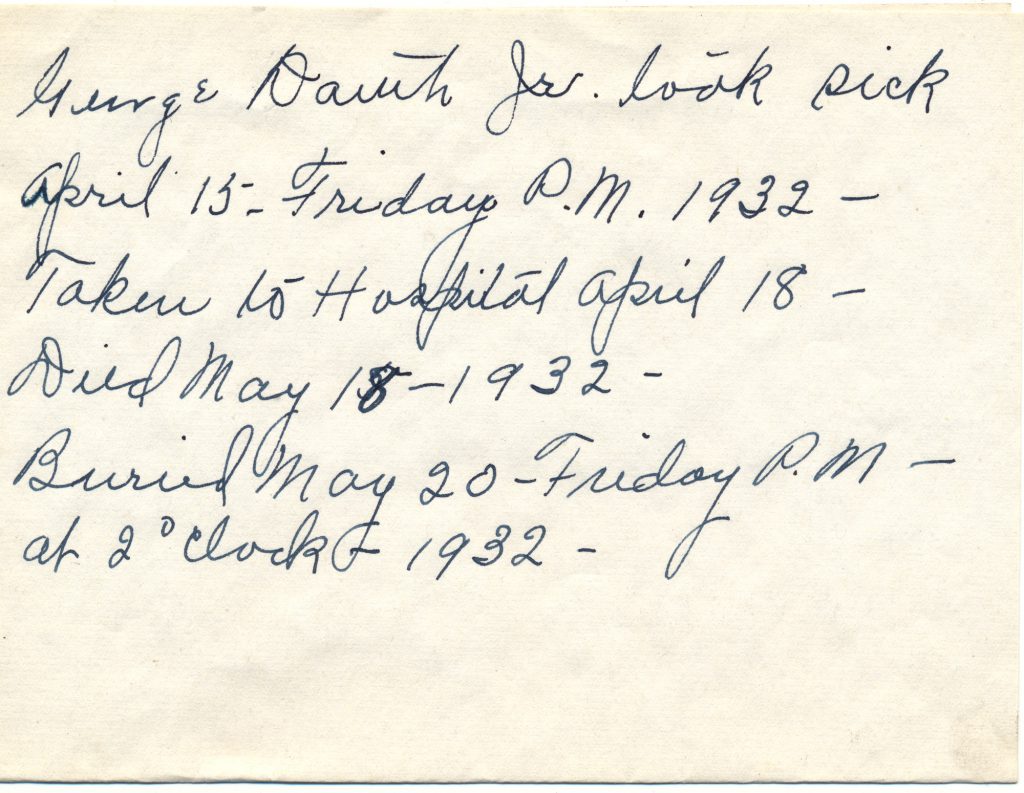 George Dauth Jr. took sick
April 15 - Friday P.M. 1932 -
Taken to Hospital April 18 -
Died May 18 - 1932 -
Buried May 20 - Friday P.M -
at 2 o'clock - 1932 -